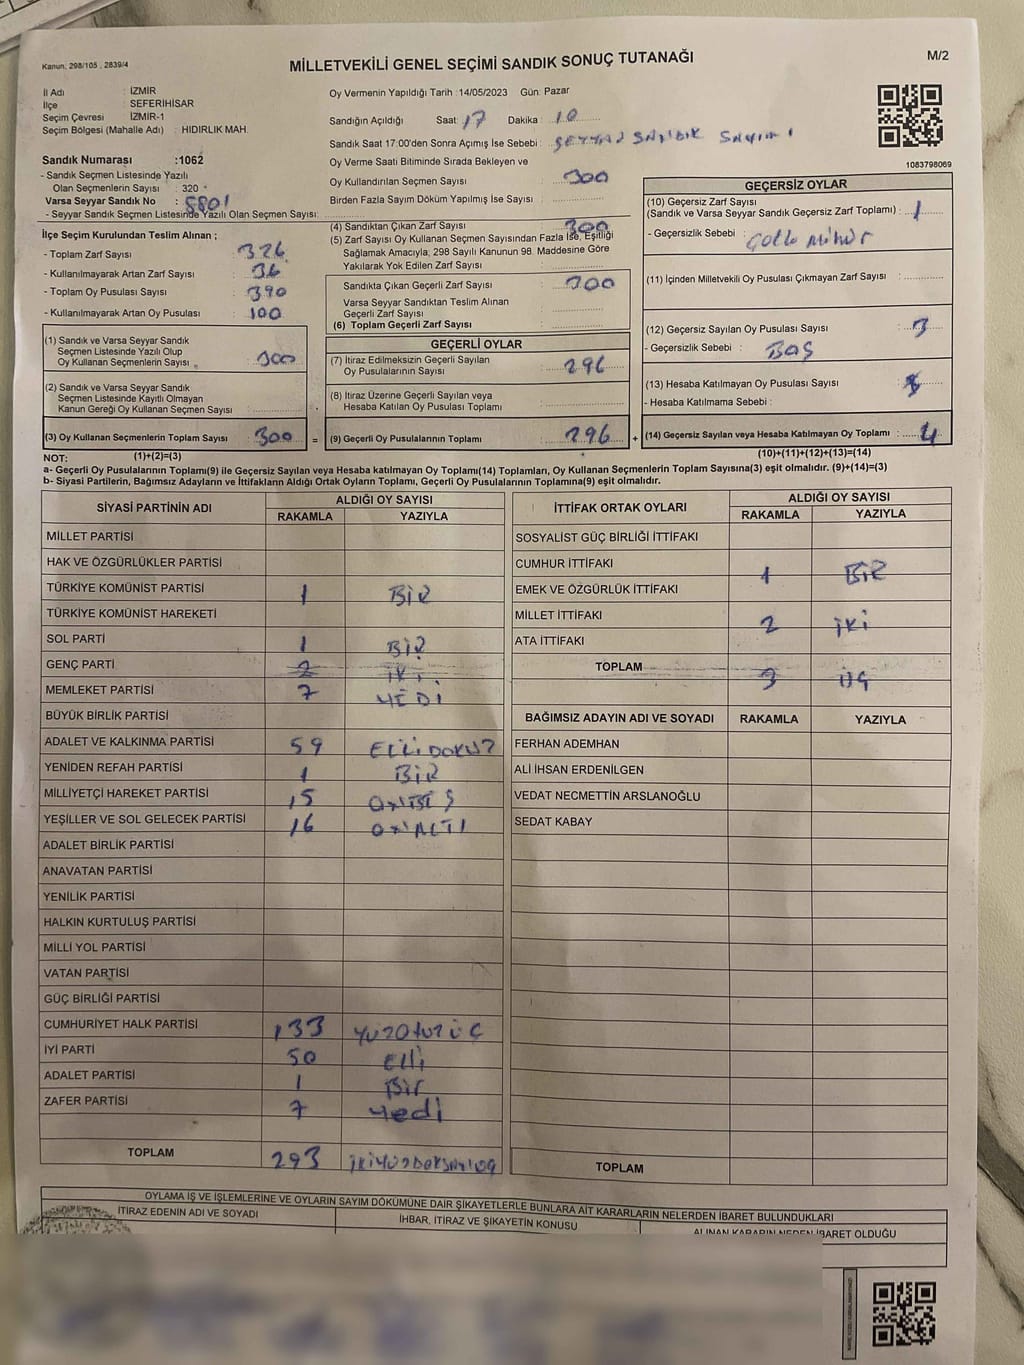 Kanun, 298/105 , 2839/4
MİLLETVEKİLİ GENEL SEÇİMİ SANDIK SONUÇ TUTANAĞI
M/2
İl Adı : İZMİR
İlçe : SEFERİHİSAR
Seçim Çevresi : İZMİR-1
Seçim Bölgesi (Mahalle Adı) : HIDIRLIK MAH.
Sandık Numarası :1062
- Sandık Seçmen Listesinde Yazılı
Olan Seçmenlerin Sayısı : 320
Varsa Seyyar Sandık No : 5801
- Seyyar Sandık Seçmen Listesinde Yazılı Olan Seçmen Sayısı:
Oy Vermenin Yapıldığı Tarih :14/05/2023 Gün: Pazar
Sandığın Açıldığı Saat: 17 Dakika : 10
Sandık Saat 17:00'den Sonra Açımış İse Sebebi : SEYYAR SANDIK SAYIMI
Oy Verme Saati Bitiminde Sırada Bekleyen ve
Oy Kullandırılan Seçmen Sayısı : 300
Birden Fazla Sayım Döküm Yapılmış İse Sayısı :
1083798069
İlçe Seçim Kurulundan Teslim Alınan ;
- Toplam Zarf Sayısı : 326
- Kullanılmayarak Artan Zarf Sayısı : 36
- Toplam Oy Pusulası Sayısı : 390
- Kullanılmayarak Artan Oy Pusulası : 100
(1) Sandık ve Varsa Seyyar Sandık
Seçmen Listesinde Yazılı Olup
Oy Kullanan Seçmenlerin Sayısı : 300
(2) Sandık ve Varsa Seyyar Sandık
Seçmen Listesinde Kayıtlı Olmayan
Kanun Gereği Oy Kullanan Seçmen Sayısı :
(3) Oy Kullanan Seçmenlerin Toplam Sayısı : 300 =
(1)+(2)=(3)
(4) Sandıktan Çıkan Zarf Sayısı : 300
(5) Zarf Sayısı Oy Kullanan Seçmen Sayısından Fazla İse, Eşitliği
Sağlamak Amacıyla; 298 Sayılı Kanunun 98. Maddesine Göre
Yakılarak Yok Edilen Zarf Sayısı :
Sandıkta Çıkan Geçerli Zarf Sayısı : 300
Varsa Seyyar Sandıktan Teslim Alınan
Geçerli Zarf Sayısı :
(6) Toplam Geçerli Zarf Sayısı :
GEÇERLİ OYLAR
(7) İtiraz Edilmeksizin Geçerli Sayılan
Oy Pusulalarının Sayısı : 296
(8) İtiraz Üzerine Geçerli Sayılan veya
Hesaba Katılan Oy Pusulası Toplamı :
(9) Geçerli Oy Pusulalarının Toplamı : 296 +
GEÇERSİZ OYLAR
(10) Geçersiz Zarf Sayısı
(Sandık ve Varsa Seyyar Sandık Geçersiz Zarf Toplamı) : 1
- Geçersizlik Sebebi : Çoklu Mühür
(11) İçinden Milletvekili Oy Pusulası Çıkmayan Zarf Sayısı :
(12) Geçersiz Sayılan Oy Pusulası Sayısı : 3
- Geçersizlik Sebebi : BOŞ
(13) Hesaba Katılmayan Oy Pusulası Sayısı :
- Hesaba Katılmama Sebebi :
(14) Geçersiz Sayılan veya Hesaba Katılmayan Oy Toplamı : 4
(10)+(11)+(12)+(13)=(14)
NOT:
a- Geçerli Oy Pusulalarının Toplamı(9) ile Geçersiz Sayılan veya Hesaba katılmayan Oy Toplamı(14) Toplamları, Oy Kullanan Seçmenlerin Toplam Sayısına(3) eşit olmalıdır. (9)+(14)=(3)
b- Siyasi Partilerin, Bağımsız Adayların ve İttifakların Aldığı Ortak Oyların Toplamı, Geçerli Oy Pusulalarının Toplamına(9) eşit olmalıdır.
SİYASİ PARTİNİN ADI ALDIĞI OY SAYISI
RAKAMLA YAZIYLA
MİLLET PARTİSİ
HAK VE ÖZGÜRLÜKLER PARTİSİ
TÜRKİYE KOMÜNİST PARTİSİ 1 BİR
TÜRKİYE KOMÜNİST HAREKETİ
SOL PARTİ 1 BİR
GENÇ PARTİ 2 İKİ
MEMLEKET PARTİSİ 7 YEDİ
BÜYÜK BİRLİK PARTİSİ
ADALET VE KALKINMA PARTİSİ 59 ELLİDOKUZ
YENİDEN REFAH PARTİSİ 1 BİR
MİLLİYETÇİ HAREKET PARTİSİ 15 ONBEŞ
YEŞİLLER VE SOL GELECEK PARTİSİ 16 ONALTI
ADALET BİRLİK PARTİSİ
ANAVATAN PARTİSİ
YENİLİK PARTİSİ
HALKIN KURTULUŞ PARTİSİ
MİLLİ YOL PARTİSİ
VATAN PARTİSİ
GÜÇ BİRLİĞİ PARTİSİ
CUMHURİYET HALK PARTİSİ 133 YÜZOTUZÜÇ
İYİ PARTİ 50 Elli
ADALET PARTİSİ 1 Bir
ZAFER PARTİSİ 7 Yedi
TOPLAM 293 İKİYÜZDOKSANÜÇ
İTTİFAK ORTAK OYLARI ALDIĞI OY SAYISI
RAKAMLA YAZIYLA
SOSYALİST GÜÇ BİRLİĞİ İTTİFAKI
CUMHUR İTTİFAKI 1 BİR
EMEK VE ÖZGÜRLÜK İTTİFAKI
MİLLET İTTİFAKI 2 İKİ
ATA İTTİFAKI
TOPLAM 3 ÜÇ
BAĞIMSIZ ADAYIN ADI VE SOYADI RAKAMLA YAZIYLA
FERHAN ADEMHAN
ALİ İHSAN ERDENİLGEN
VEDAT NECMETTİN ARSLANOĞLU
SEDAT KABAY
TOPLAM
OYLAMA İŞ VE İŞLEMLERİNE VE OYLARIN SAYIM DÖKÜMÜNE DAİR ŞİKAYETLERLE BUNLARA AİT KARARLARIN NELERDEN İBARET BULUNDUKLARI
İTİRAZ EDENİN ADI VE SOYADI İHBAR, İTİRAZ VE ŞİKAYETİN KONUSU ALINAN KARARIN NEDEN İBARET OLDUĞU